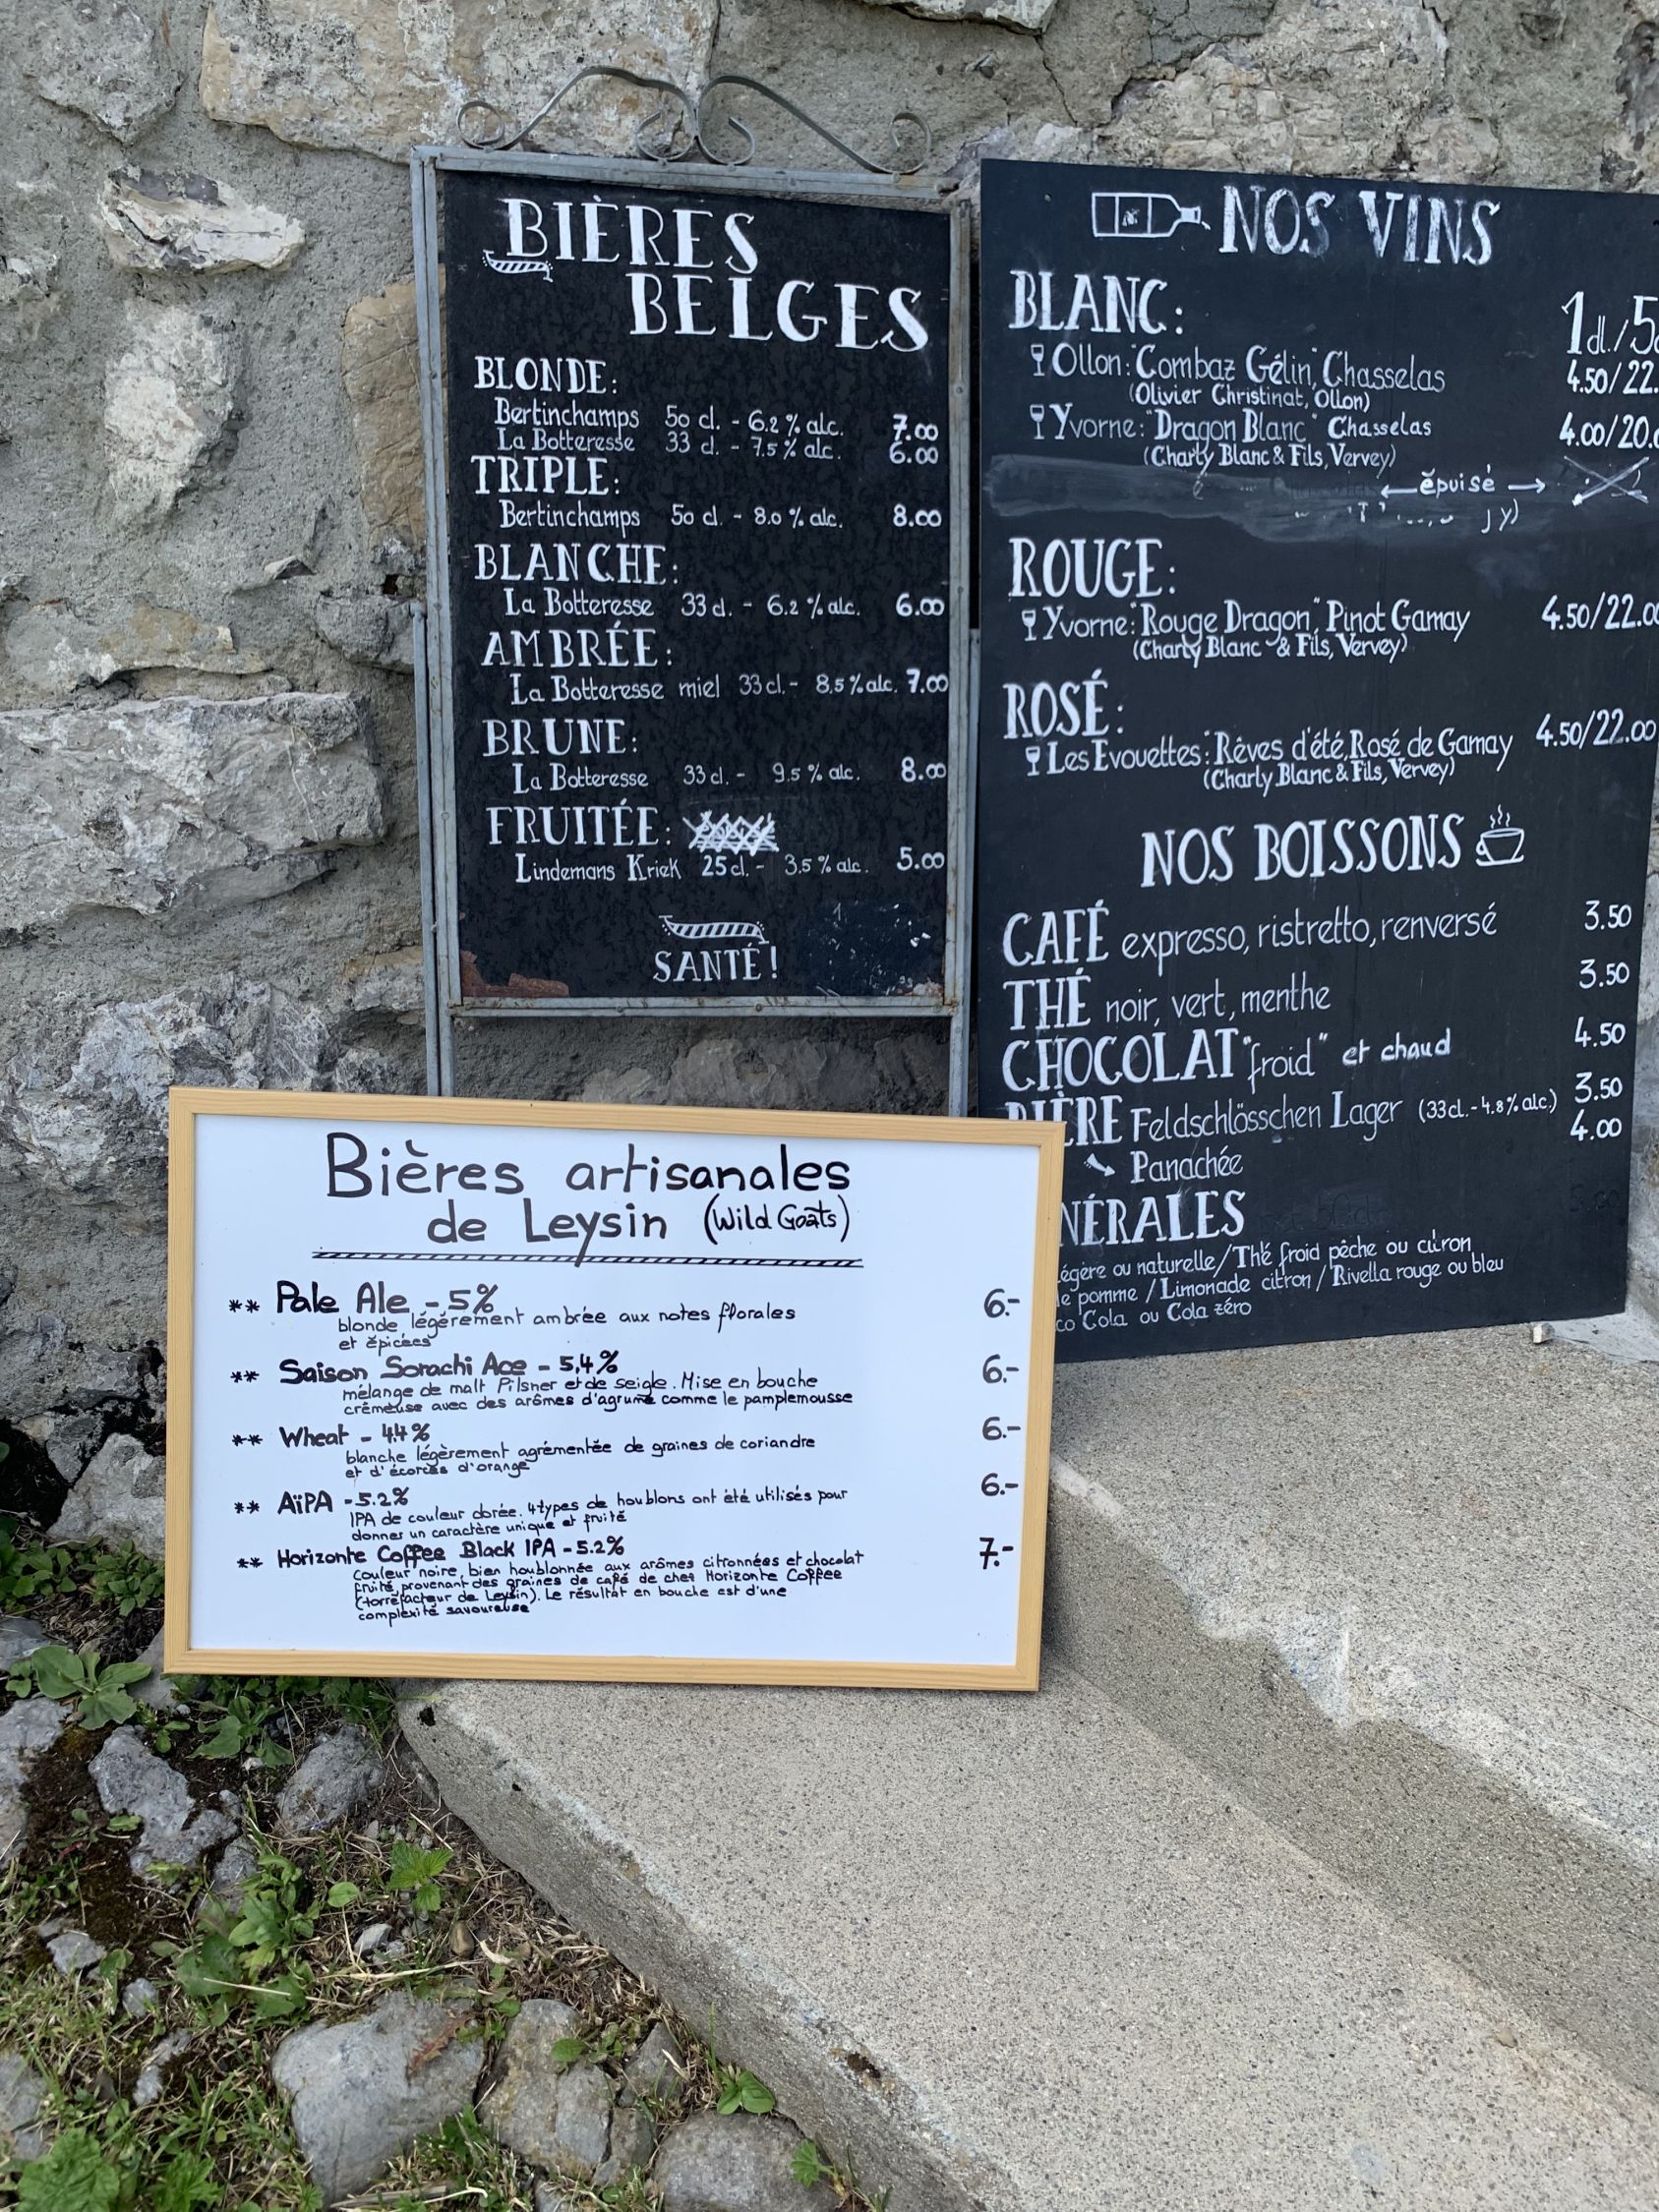 BIÈRES
BELGES
BLONDE:
Bertinchamps 50 cl. - 6.2 % alc. 7.00
La Botteresse 33 cl. - 7.5 % alc. 6.00
TRIPLE:
Bertinchamps 50 cl. - 8.0 % alc. 8.00
BLANCHE:
La Botteresse 33 cl. - 6.2 % alc. 6.00
AMBRÉE:
La Botteresse miel 33 cl. - 8,5 % alc. 7.00
BRUNE:
La Botteresse 33 cl. - 9.5 % alc. 8.00
FRUITÉE:
Lindemans Kriek 25 cl. - 3.5 % alc. 5.00
SANTÉ!
NOS VINS
BLANC: 1dl./5
Ollon: "Combaz Gélin", Chasselas 4.50/22.
(Olivier Christinat, Ollon)
Yvorne: "Dragon Blanc" Chasselas 4.00/20.
(Charly Blanc & Fils, Vervey)
épuisé
ROUGE:
Yvorne: "Rouge Dragon", Pinot Gamay 4.50/22.00
(Charly Blanc & Fils, Vervey)
ROSÉ:
Les Evouettes: "Rêves d'été, Rosé de Gamay 4.50/22.00
(Charly Blanc & Fils, Vervey)
NOS BOISSONS
CAFÉ expresso, ristretto, renversé 3.50
THÉ noir, vert, menthe 3.50
CHOCOLAT "froid" et chaud 4.50
BIÈRE Feldschlösschen Lager (33cl.-4.8% alc.) 3.50
Panachée 4.00
NÉRALES
égère ou naturelle / Thé froid pêche ou citron
e pomme / Limonade citron / Rivella rouge ou bleu
co Cola ou Cola zéro
Bières artisanales
de Leysin (Wild Goats)
** Pale Ale - 5% 6.-
blonde légèrement ambrée aux notes florales
et épicées
** Saison Sorachi Ace - 5,4% 6.-
mélange de malt Pilsner et de seigle. Mise en bouche
crémeuse avec des arômes d'agrume comme le pamplemousse
** Wheat - 4.4% 6.-
blanche légèrement agrémentée de graines de coriandre
et d'écorces d'orange
** AïPA - 5.2% 6.-
IPA de couleur dorée. 4 types de houblons ont été utilisés pour
donner un caractère unique et fruité
** Horizonte Coffee Black IPA - 5.2% 7.-
couleur noire, bien houblonnée aux arômes citronnées et chocolat
fruité, provenant des graines de café de chez Horizonte Coffee
(torréfacteur de Leysin). Le résultat en bouche est d'une
complexité savoureuse